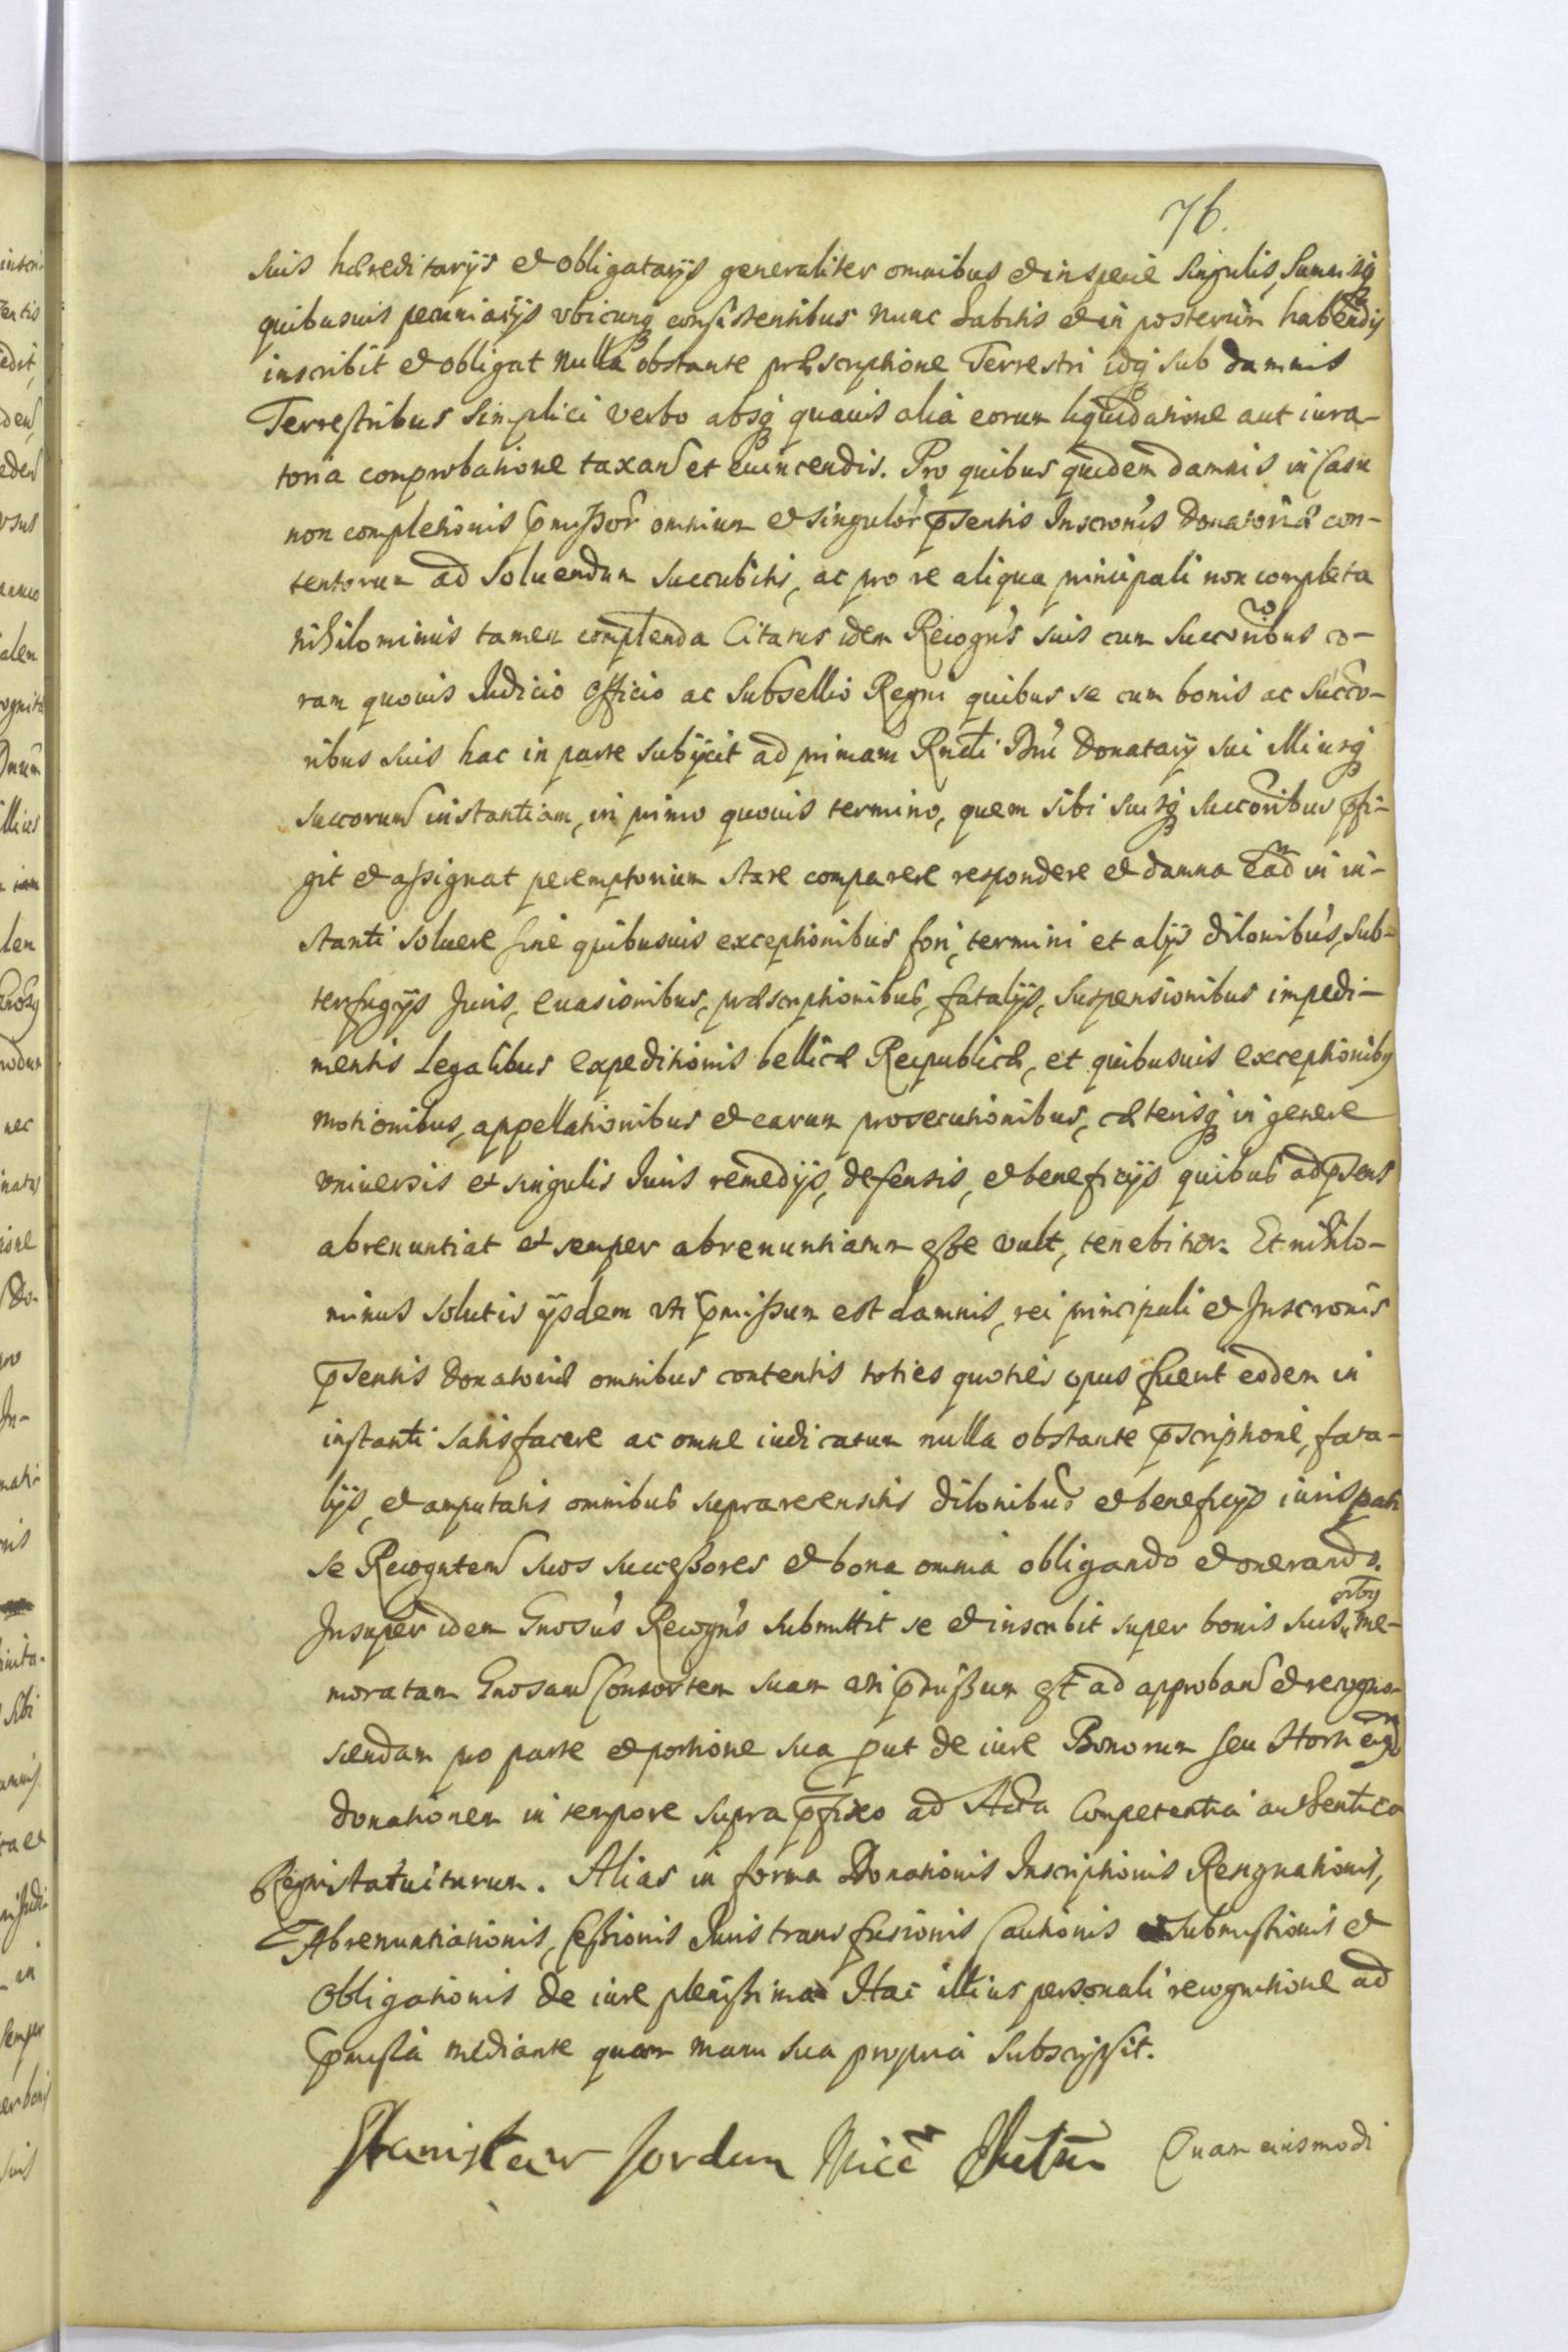 76.
suis haereditarijs et obligatarijs generaliter omnibus et in specie singulis, summisq
quibusuis pecuniarijs vbicunq consistentibus nunc habitis et in posterum habendis
inscribit et obligat nulla obstante praescriptione Terrestri idq sub damnis
Terrestribus simplici verbo absq quauis alia eorum liquidatione aut iura-
toria comprobatione taxand et euincendis. Pro quibus quidem damnis in casu
non completionis pmissor omnium et singulor psentis Inscronis Donatoriae con-
tentorum ad soluendum succubitis, ac pro re aliqua principali non completa
nihilominus tamen complenda Citatus idem Recogns suis cum succoribus co-
ram quouis Iudicio Officio ac Subsellio Regni quibus se cum bonis ac succo-
ribus suis hac in parte subijcit ad primam Rndi Dni Donatarij sui illiusq
succorum instantiam, in primo quouis termino, quem sibi suisq succoribus pfi-
git et assignat peremptorium stare comparere respondere et damna ead in in-
stanti soluere sine quibusuis exceptionibus fori, termini et alijs dilonibus, sub-
terfugijs Juris, euasionibus, praescriptionibus, fatalijs, suspensionibus impedi-
mentis legalibus expeditionis bellicae Reipublicae, et quibusuis exceptionibus
motionibus, appellationibus et earum prosecutionibus, caeterisq in genere
vniuersis et singulis Iuris remedijs, defensis, et beneficijs quibus ad psens
abrenuntiat et semper abrenuntiatum esse vult, tenebitur. Et nihilo-
minus solutis ijsdem vti pmissum est damnis, rei principali et Inscronis
psentis Donatoriae omnibus contentis toties quoties opus fuerit eodem in
instanti satisfacere ac omne iudicatum nulla obstante pscriptione, fata-
lijs, et amputatis omnibus suprarecensitis dilonibus et beneficijs iuris pati
se Recogntem suos successores et bona omnia obligando et onerando.
Insuper idem Gnosus Recogns submittit se et inscribit super bonis suis oibus me-
moratam Gnosam Consortem suam vti pmissum est ad approband et recogno-
scendam pro parte et portione sua put de iure Bonorum seu Horti
donationem in tempore supra pfixo ad Acta Competentia authentica
Regni statuiturum. Alias in forma Donationis Inscriptionis Resignationis,
Abrenuntiationis, Cessionis Iuris transfusionis Cautionis submissionis et
Obligationis de iure plenissima Hac illius personali recognitione ad
pmissa mediante quam manu sua propria subscripsit.
Stanislaw Jordan Quam eiusmodi